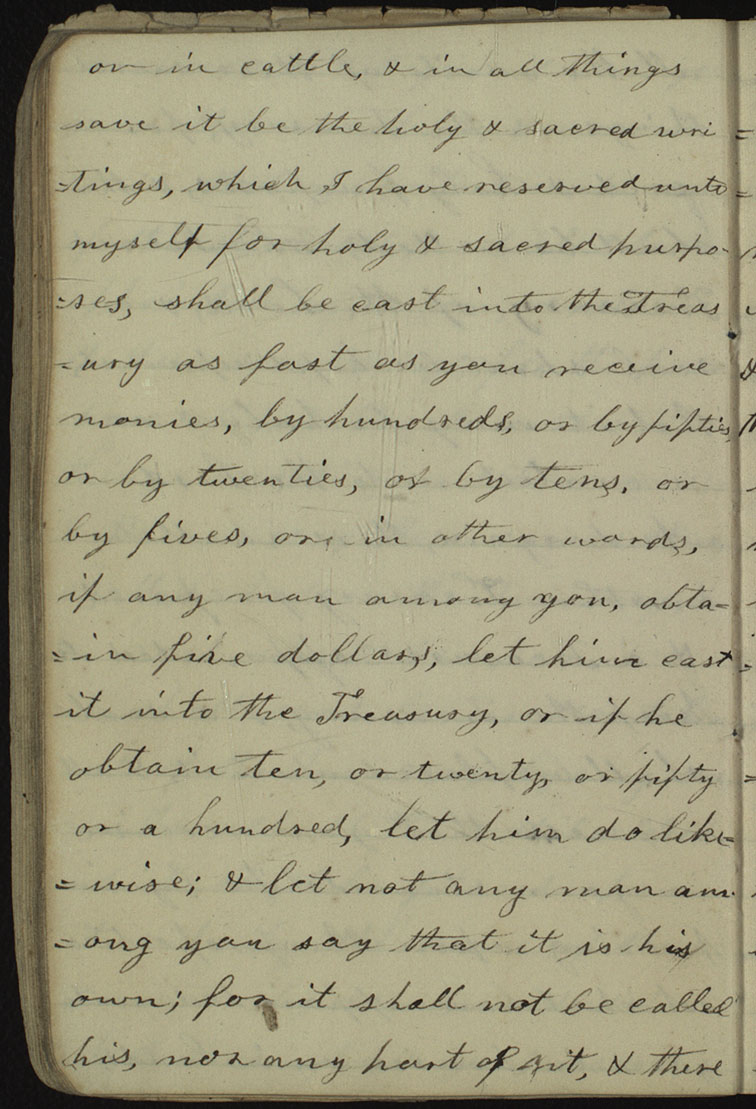 or in cattle, & in all things
save it be the holy & sacred wri
=tings, which I have reserved unto
myself for holy & sacred purpo-
=ses, shall be cast into the Treas
-ury as fast as you receive
monies, by hundreds, or by fifties,
or by twenties, or by tens, or
by fives, or in other words,
if any man among you, obta-
=in five dollars, let him cast
it into the Treasury, or if he
obtain ten, or twenty, or fifty
or a hundred, let him do like=
=wise; & let not any man am-
=ong you say that it is his
own; for it shall not be called
his, nor any part of it, & there